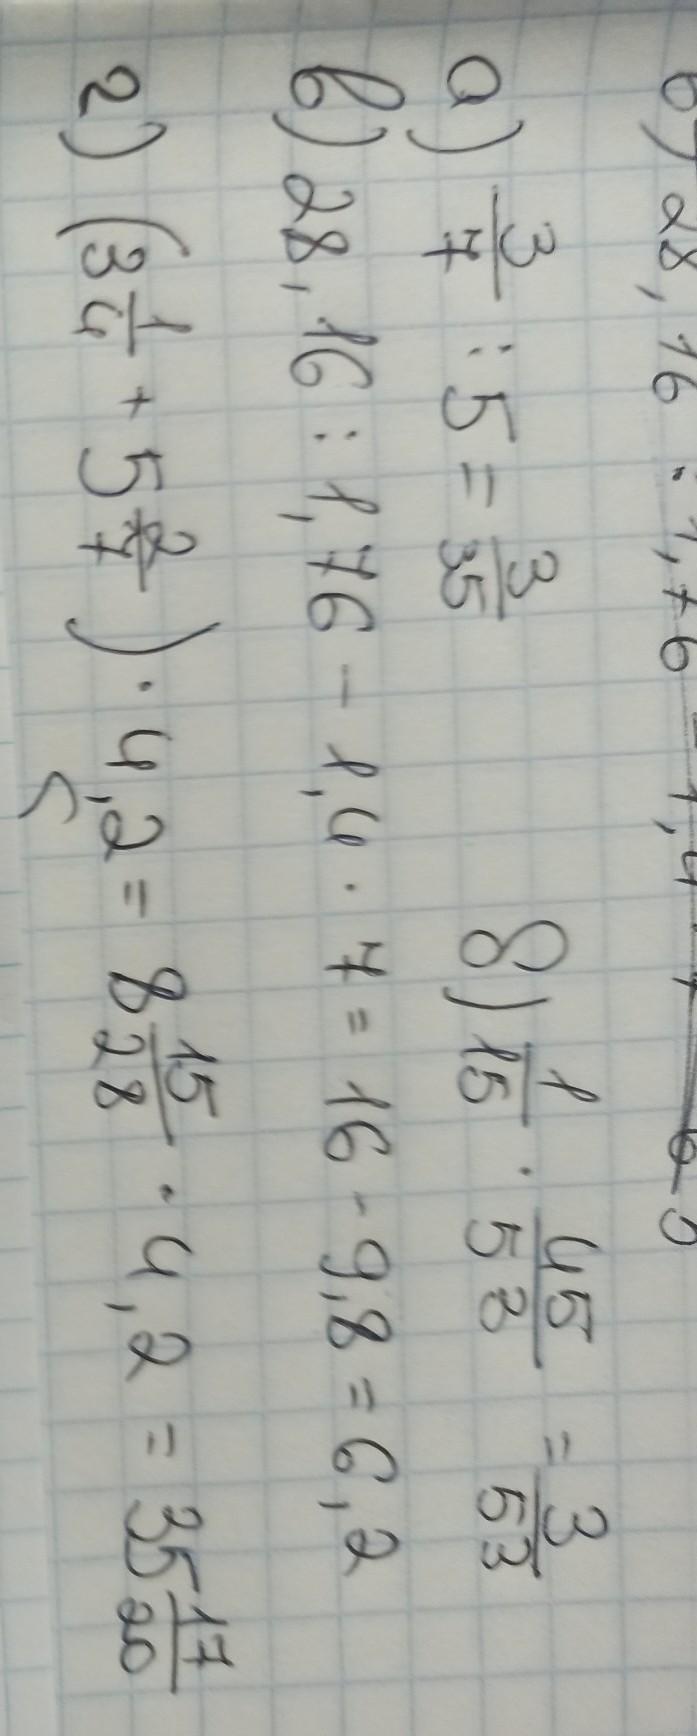 б) 28,16 : 1,76 - 1,4
а) 3/7 : 5 = 3/35    б) 1/15 · 45/53 = 3/53
в) 28,16 : 1,76 - 1,4 · 7 = 16 - 9,8 = 6,2
г) (3 1/4 + 5 2/7) · 4,2 = 8 15/28 · 4,2 = 35 17/20